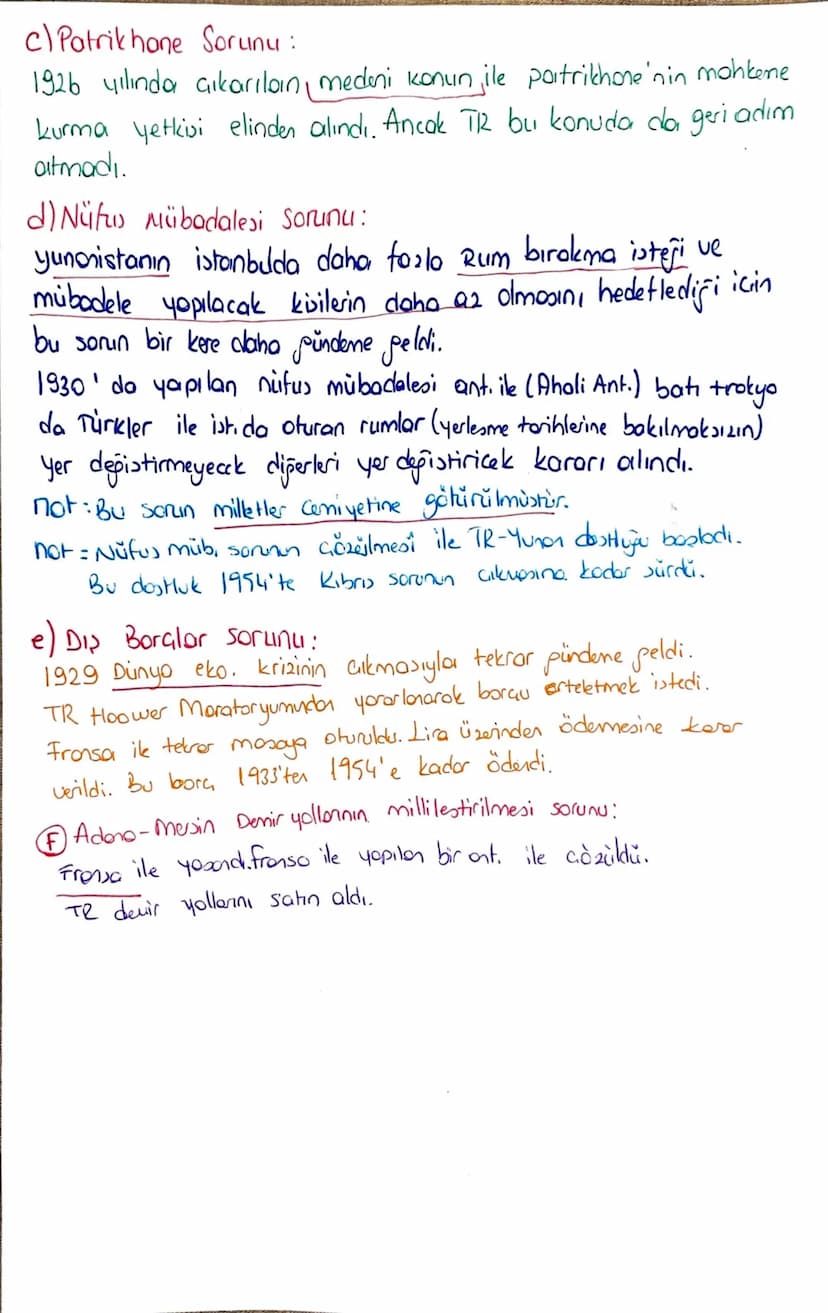 c) Patrikhane Sorunu :
1926 yılında çıkarılan medeni kanun ile patrikhane'nin mahkeme
kurma yetkisi elinden alındı. Ancak TR bu konuda da geri adım
atmadı.
d) Nüfus Mübadelesi Sorunu :
yunanistanın istanbulda daha fazla Rum bırakma isteği ve
mübadele yapılacak kişilerin daha az olmasını hedeflediği için
bu sorun bir kere daha gündeme geldi.
1930' da yapılan nüfus mübadelesi ant. ile (Ahali Ant.) batı trakya
da Türkler ile ist. da oturan rumlar (yerleşme tarihlerine bakılmaksızın)
yer değiştirmeyecek diğerleri yer değiştiricek kararı alındı.
not : Bu sorun milletler cemiyetine götürülmüştür.
not = Nüfus müb. sorunun çözülmesi ile TR-Yunan dostluğu başladı.
Bu dostluk 1954'te Kıbrıs sorunun çıkmasına kadar sürdü.
e) Dış Borçlar sorunu :
1929 Dünya eko. krizinin çıkmasıyla tekrar gündeme geldi.
TR Hoower Moratoryumundan yararlanarak borcu erteletmek istedi.
Fransa ile tekrar masaya oturuldu. Lira üzerinden ödemesine karar
verildi. Bu borç 1933'ten 1954'e kadar ödendi.
F Adana-Mersin Demir yollarının millileştirilmesi sorunu :
Fransa ile yaşandı. fransa ile yapılan bir ant. ile çözüldü.
TR demir yollarını satın aldı.